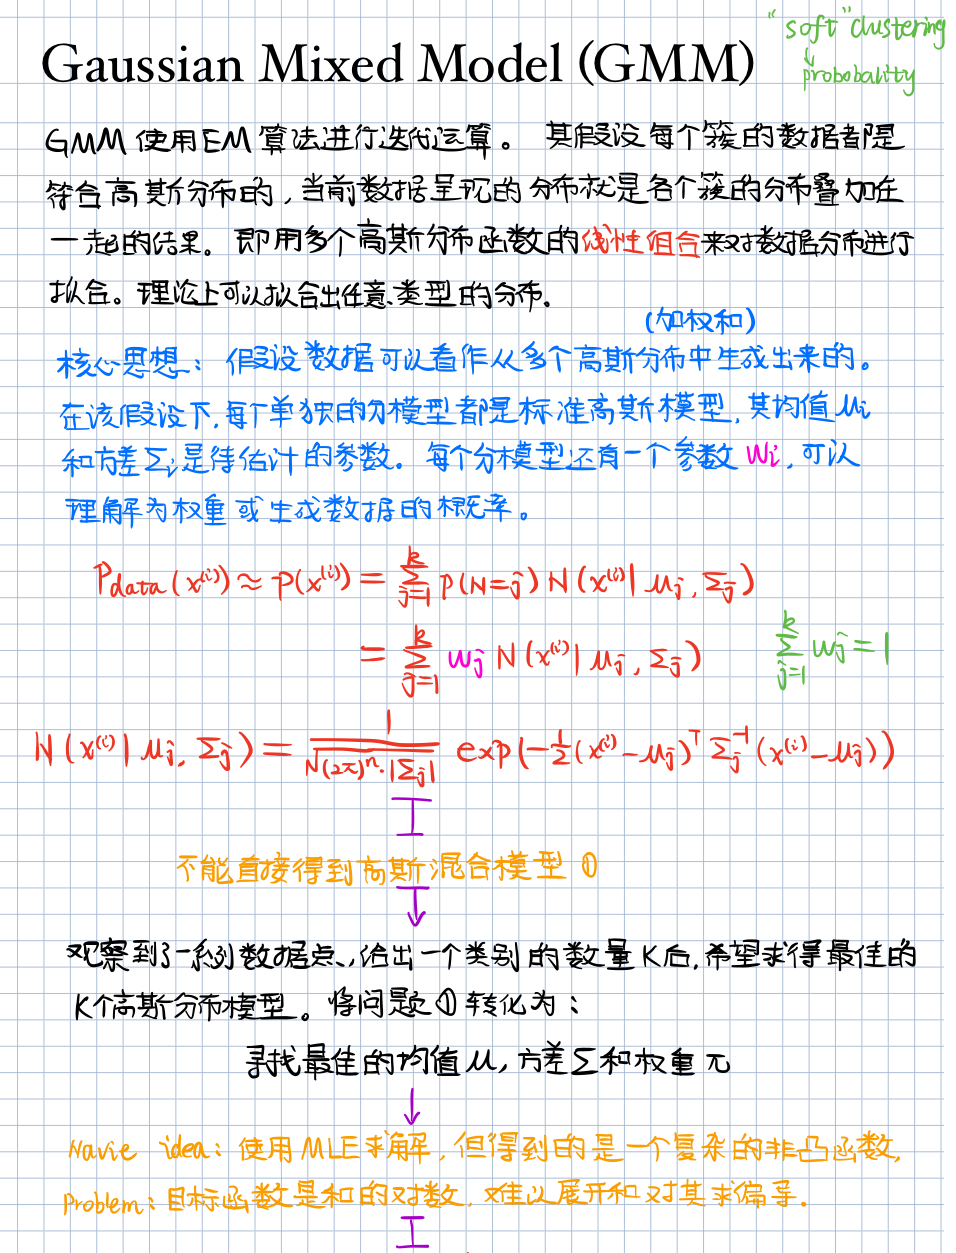 "soft" clustering
Gaussian Mixed Model (GMM)
↓
probobality
GMM 使用EM 算法进行迭代运算。 其假设每个簇的数据都是
符合高斯分布的,当前数据呈现的分布就是各个簇的分布叠加在
一起的结果。即用多个高斯分布函数的线性组合来对数据分布进行
拟合。理论上可以拟合出任意类型的分布。
(加权和)
核心思想: 假设数据可以看作从多个高斯分布中生成出来的。
在该假设下,每个单独的分模型都是标准高斯模型,其均值 μi
和方差Σi是待估计的参数。每个分模型还有一个参数 Wi,可以
理解为权重或生成数据的概率。
Pdata(x⁽ⁱ⁾) ≈ p(x⁽ⁱ⁾) = Σ_{j=1}^{k} p(N=j) N(x⁽ⁱ⁾| μj, Σj)
= Σ_{j=1}^{k} wj N(x⁽ⁱ⁾| μj, Σj) Σ_{j=1}^{k} wj = 1
N(x⁽ⁱ⁾| μj, Σj) = 1/√((2π)ⁿ·|Σj|) exp(-½(x⁽ⁱ⁾-μj)ᵀ Σj⁻¹ (x⁽ⁱ⁾-μj))
不能直接得到高斯混合模型 ①
↓
观察到了一系列数据点,给出一个类别的数量 K后,希望求得最佳的
K个高斯分布模型。将问题①转化为:
寻找最佳的均值 μ, 方差Σ和权重 π
↓
Navie idea: 使用 MLE求解, 但得到的是一个复杂的非凸函数,
Problem: 目标函数是和的对数, 难以展开和对其求偏导。